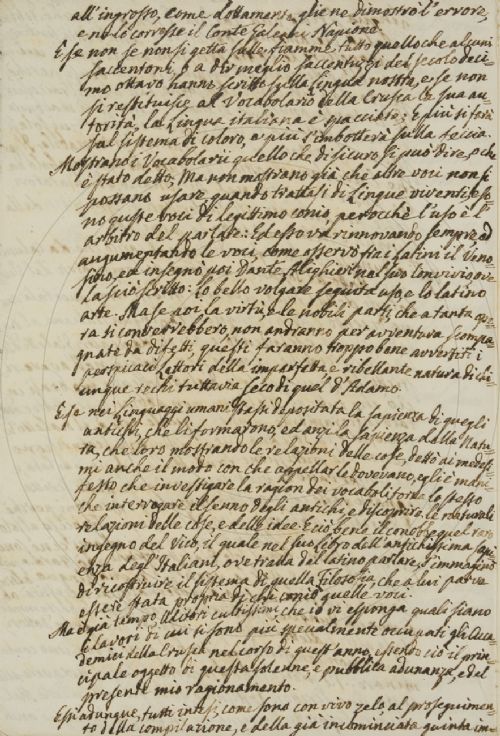 all'ingrosso, come dottamente gliene dimostrò l'errore,
e ne lo corresse il Conte Galeani Napione.
E se non se non si getta sulle fiamme tutto quello che alcuni
saccentoni, o a dir meglio saccentuzzi del secolo deci-
mo ottavo hanno scritto sulla Lingua nostra, e se non
si restituisce al Vocabolario della Crusca la sua au-
torità, la Lingua italiana è spacciata; E più si farà
sul sistema di coloro, e più s'imbotterà sulla feccia.
Mostrano i Vocabolarii quello che di sicuro si può dire, o che
è stato detto, Ma non mostrano già che altre voci non si
possano usare, quando trattasi di Lingue viventi, e so-
no queste voci di legittimo conio, perocchè l'uso è l'
arbitro del parlare: Ed esso va rinnovando sempre ed
augumentando le voci, come osservò fra i Latini il Veno-
sino, ed insegnò poi Dante Alighieri nel suo Convivio, ove
lasciò scritto: lo bello volgare seguita uso, e lo latino
arte. Ma se poi la virtù, e le nobili parti, che a tanta
ra si converrebbero, non andranno per avventura scompa-
gnate da difetti, questi faranno troppo bene avvertiti i
perspicaci Lettori della imperfetta e ribellante natura di chi-
unque rechi tuttavia seco di quel d'Adamo.
E se nei Linguaggi umani stassi depositata la sapienza di quegli
antichi, che li formarono, ed anzi la sapienza della Natu-
ra, che loro mostrando le relazioni delle cose, dettò ai medesi-
mi anche il modo con che appellar le dovevano, egli è mani-
festo che investigare la ragion dei vocaboli torna lo stesso
che interrogare il senno degli antichi, e discoprire le naturali
relazioni delle cose, e delle idee. E ciò bene il conobbe quel raro
ingegno del Vico, il quale nel suo libro dell'antichissima sapi-
enza degl'Italiani, ove tratta del latino parlare, s'immaginò
di ricostruire il sistema di quella filosofia, che a lui parve
essere stata propria di chi coniò quelle voci.
Ma è già tempo, Uditori cultissimi che io vi esponga quali siano
i lavori di cui si sono più specialmente occupati gli Acca-
demici della Crusca nel corso di quest'anno, essendo ciò il prin-
cipale oggetto di questa solenne, e pubblica adunanza, e del
presente mio ragionamento.
Essi adunque, tutti intesi, come sono con vivo zelo al proseguimen-
to della compilazione, e della già incominciata quinta im-